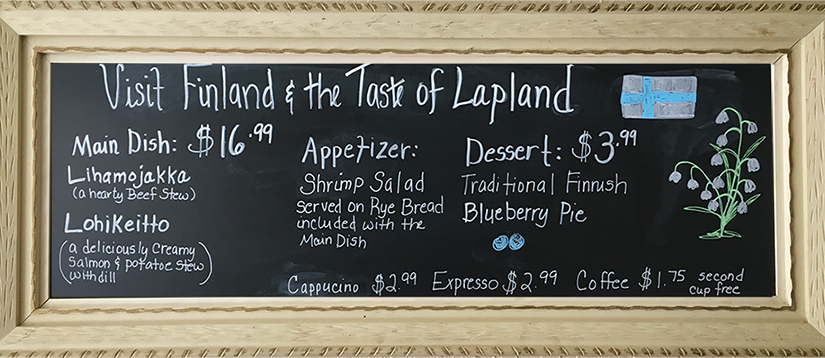 Visit Finland & the Taste of Lapland
Main Dish: $16.99
Lihamojakka
(a hearty Beef Stew)
Lohikeitto
(a deliciously Creamy
Salmon & potatoe Stew
with dill)
Appetizer:
Shrimp Salad
served on Rye Bread
included with the
Main Dish
Dessert: $3.99
Traditional Finnish
Blueberry Pie
Cappucino $2.99 Expresso $2.99 Coffee $1.75 second
cup free